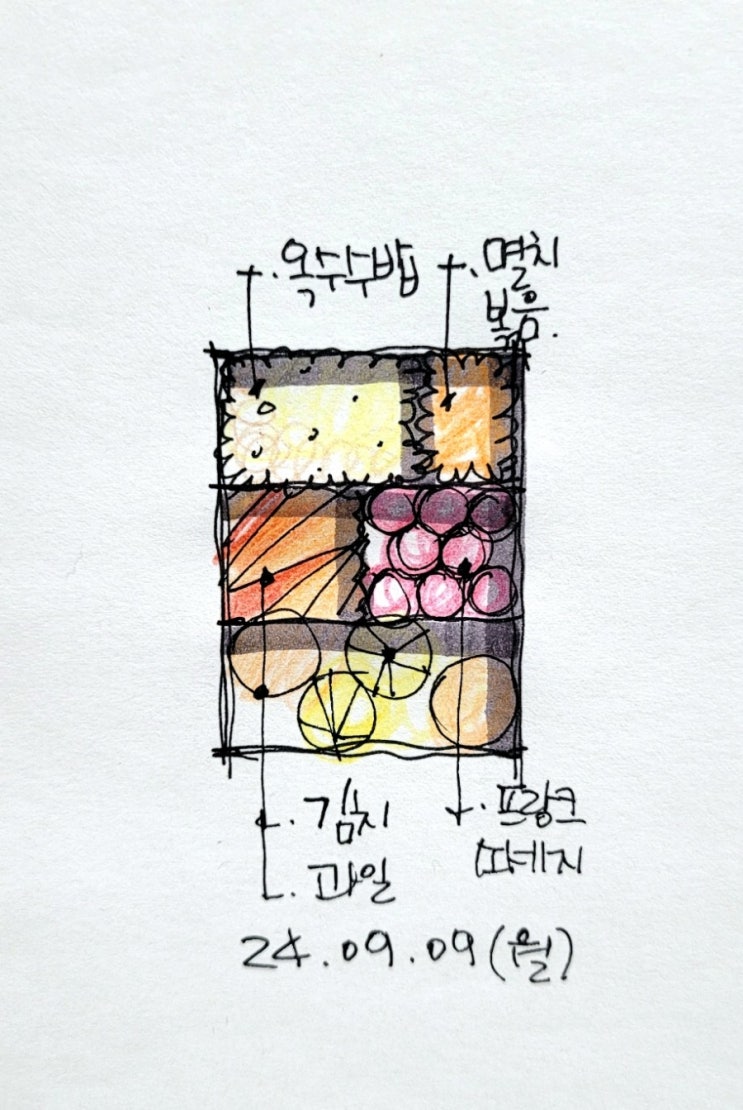 옥수수밥
멸치
볶음.
김치
과일
프랑크
24.09.09(월)